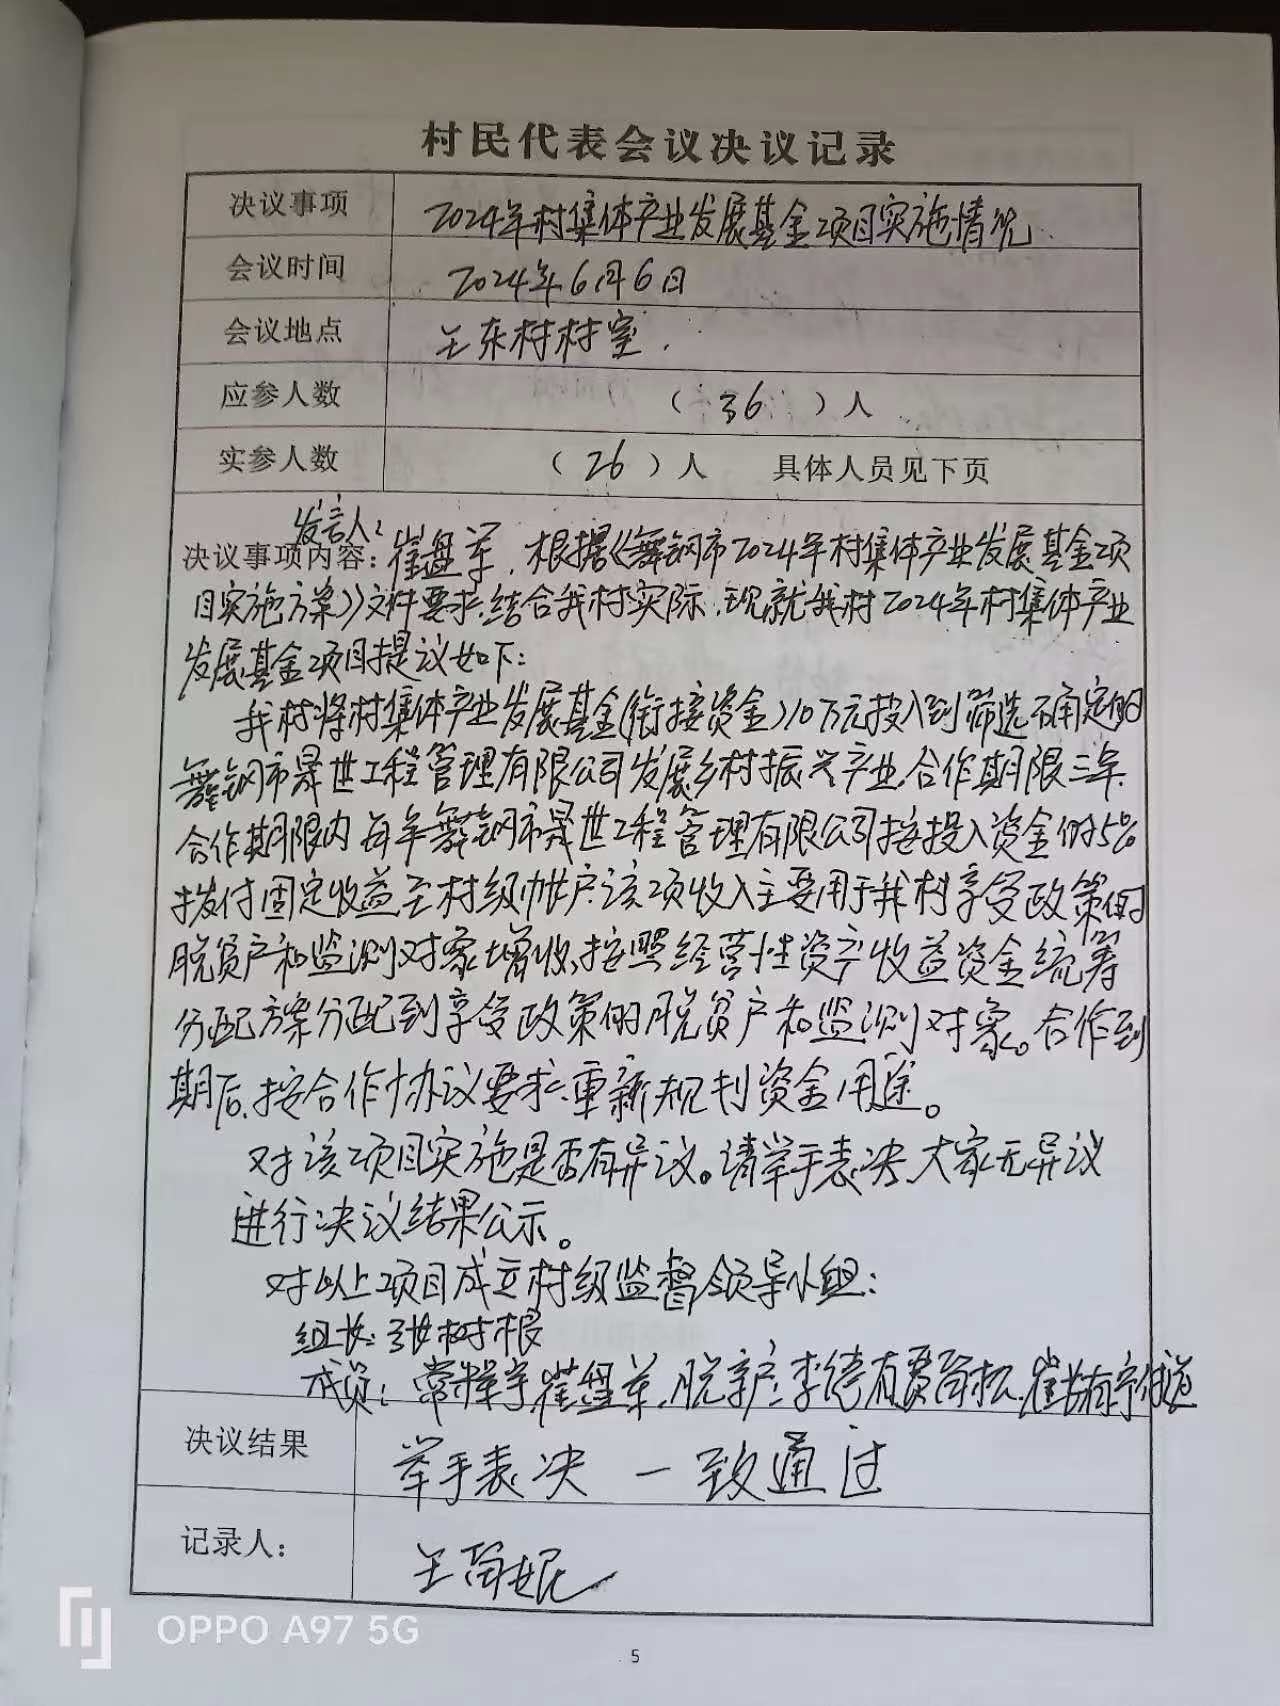 村民代表会议决议记录
决议事项 2024年村集体产业发展基金项目实施情况
会议时间 2024年6月6日
会议地点 王东村村室.
应参人数 （36）人
实参人数 （26）人 具体人员见下页
发言人:
决议事项内容：崔盘军.根据《舞钢市2024年村集体产业发展基金项
目实施方案》文件要求,结合我村实际,现就我村2024年村集体产业
发展基金项目提议如下:
我村将村集体产业发展基金(衔接资金)10万元投入到筛选确定的
舞钢市晟世工程管理有限公司发展乡村振兴产业,合作期限三年.
合作期限内每年舞钢市晟世工程管理有限公司按投入资金的5%
拨付固定收益至村级帐户.该项收入主要用于我村享受政策的
脱贫户和监测对象增收,按照经营性资产收益资金统筹
分配方案分配到享受政策的脱贫户和监测对象。合作到
期后,按合作协议要求,重新规划资金用途。
对该项目实施是否有异议。请举手表决,大家无异议
进行决议结果公示。
对以上项目成立村级监督领导小组:
组长:张树根
成员: 崔盘军.脱贫户:李德有
决议结果 举手表决 一致通过
记录人： 王
OPPO A97 5G
5